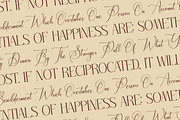 OST. IF NOT RECIPROCATED, IT WILL
Bewilderment Which Overtakes One Person On Account
NTIALS OF HAPPINESS ARE: SOMETH
By Drawn By The Stronger Pull Of What Y
OST. IF NOT RECIPROCATED, IT WILL
Bewilderment Which Overtakes One Person On Account Of A
ENTIALS OF HAPPINESS ARE: SOM